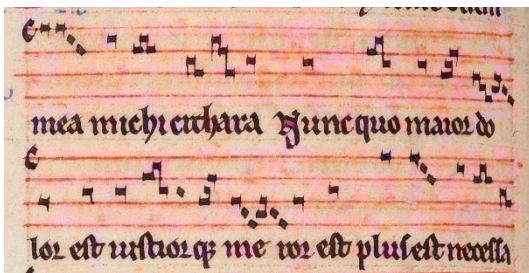 mea michi cithara Nunc quo maior do
lor est iustiorqꝫ me ror est plus est necessa